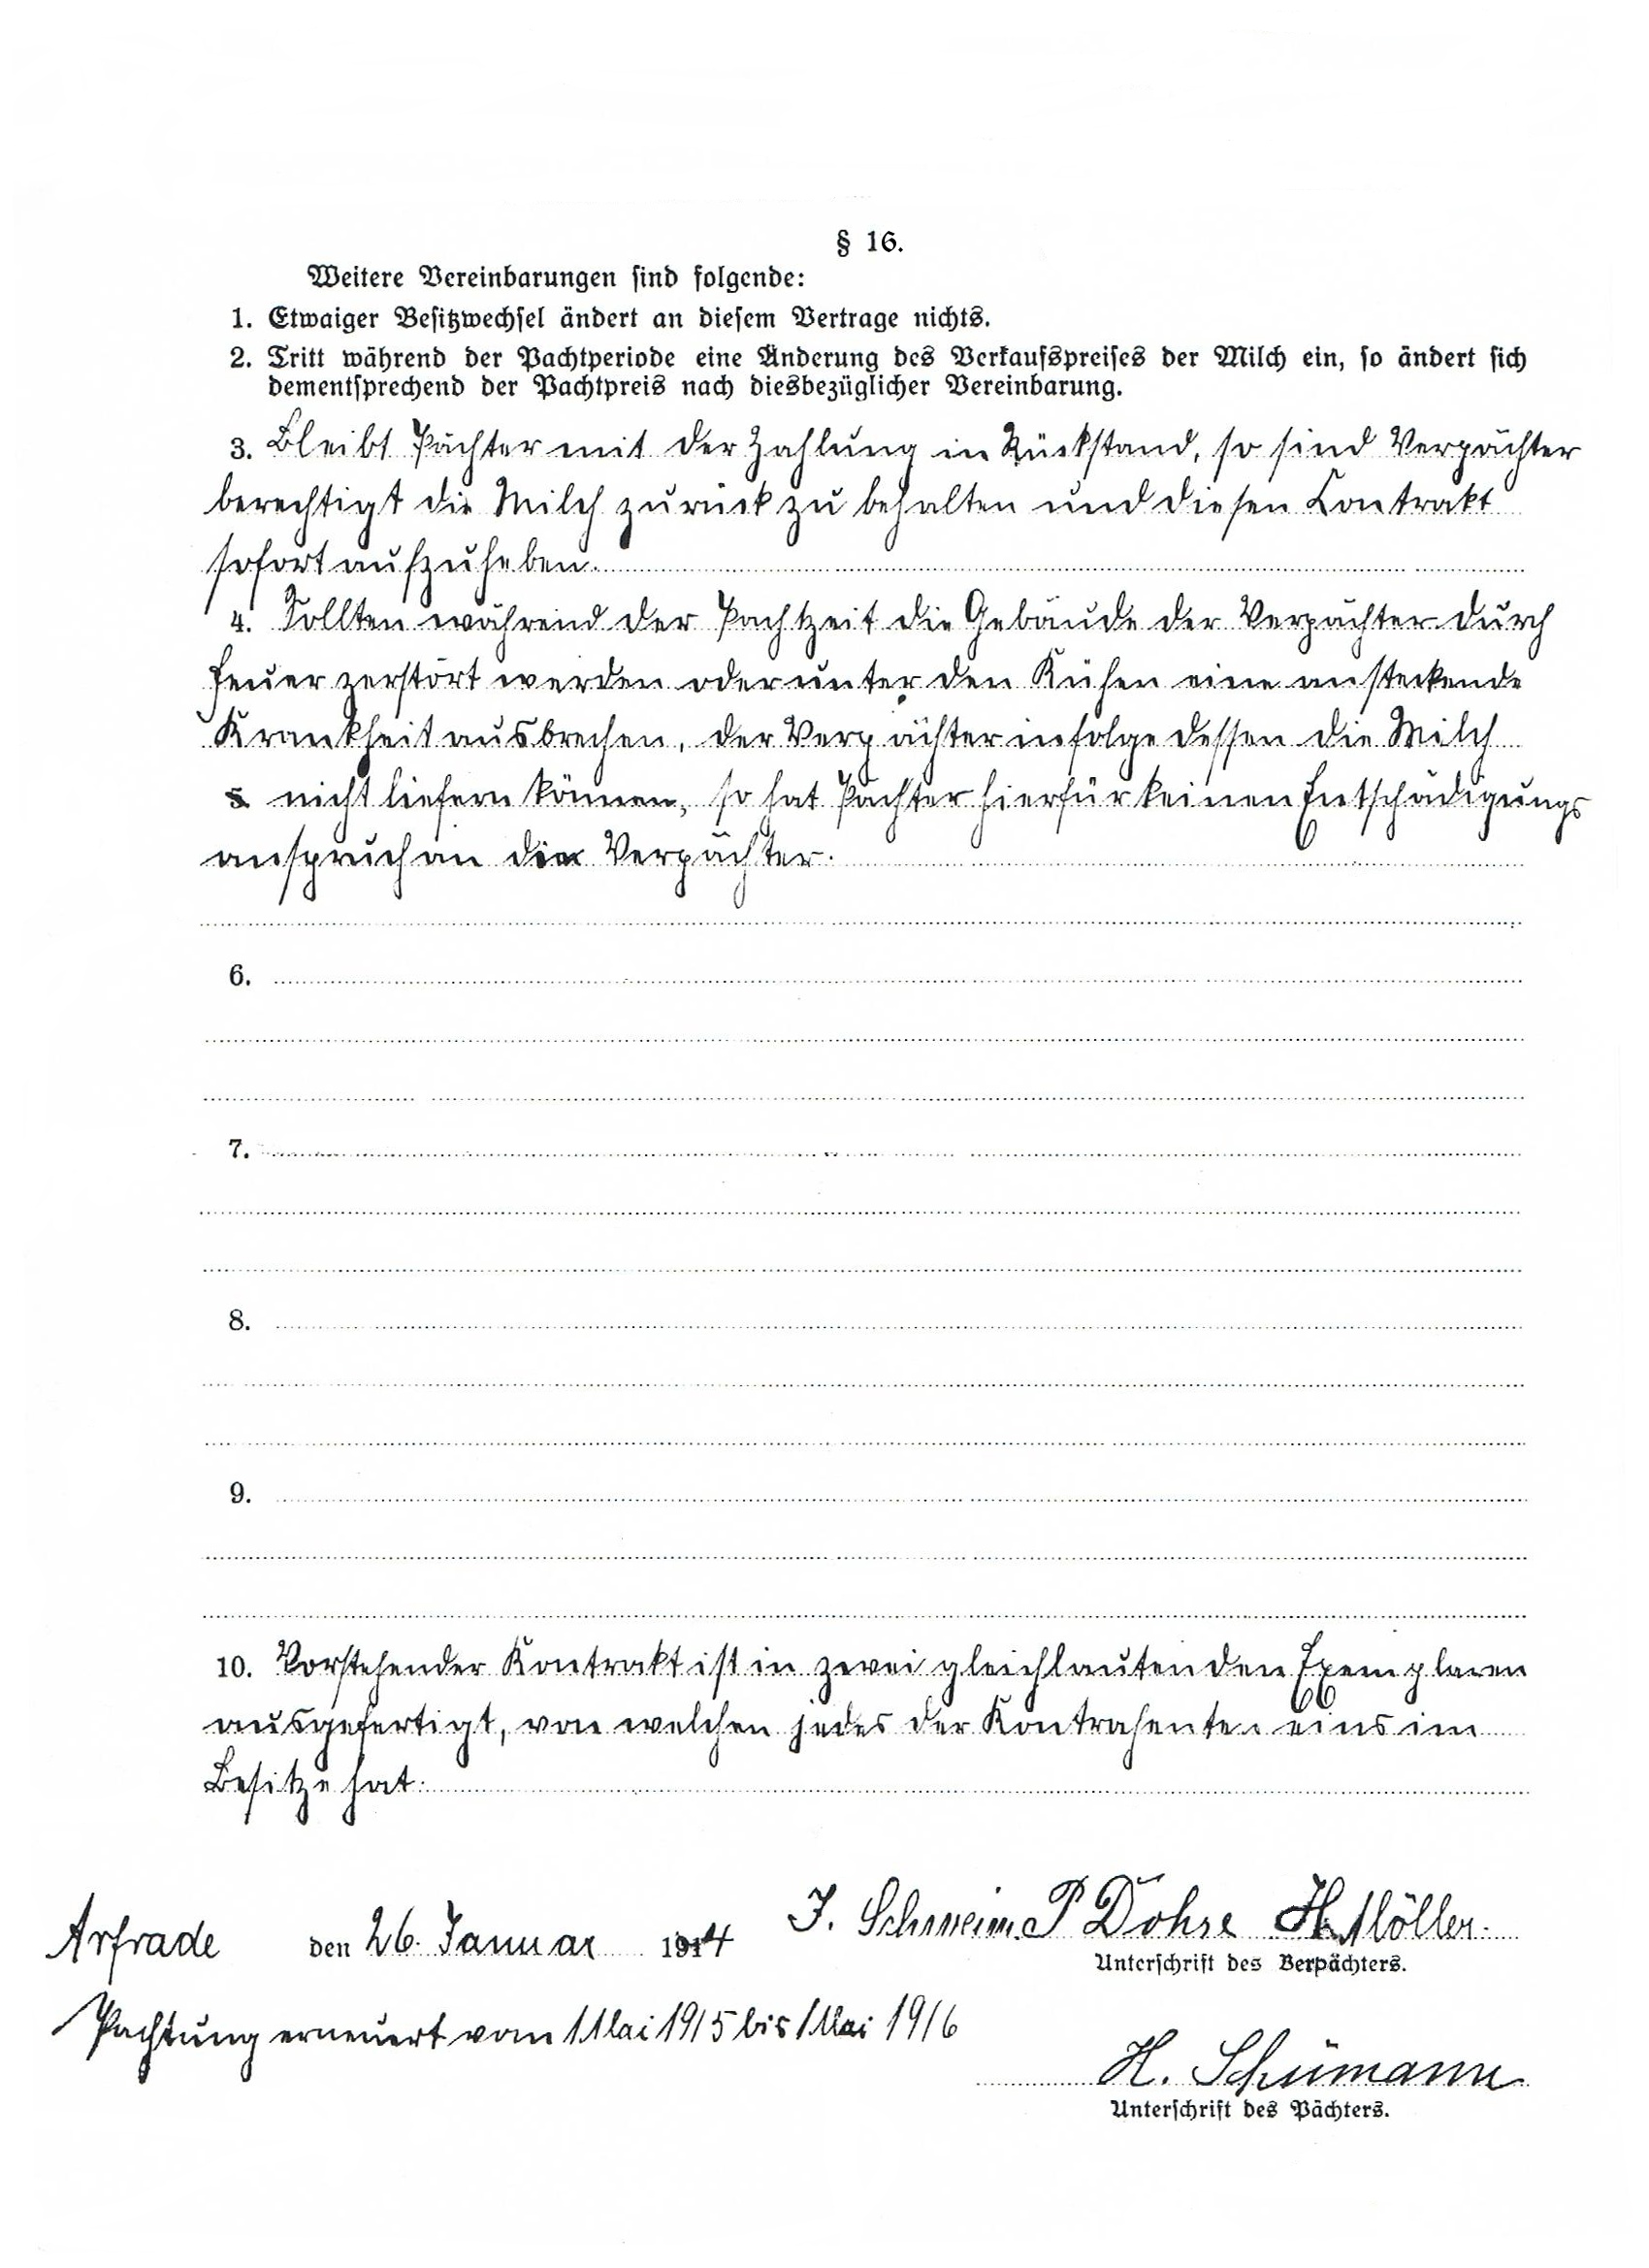 § 16.
Weitere Vereinbarungen sind folgende:
1. Etwaiger Besitzwechsel ändert an diesem Vertrage nichts.
2. Tritt während der Pachtperiode eine Änderung des Verkaufspreises der Milch ein, so ändert sich
dementsprechend der Pachtpreis nach diesbezüglicher Vereinbarung.
3. Bleibt Pächter mit der Zahlung in Rückstand, so sind Verpächter
berechtigt die Milch zurück zu behalten und diesen Contrakt
sofort aufzuheben.
4. Sollten während der Pachtzeit die Gebäude der Verpächter durch
Feuer zerstört werden oder unter den Kühen eine ansteckende
Krankheit ausbrechen, der Verpächter infolge dessen die Milch
nicht liefern können, so hat Pächter hierfür keinen Entschädigungs
anspruch an die Verpächter.
6.
7.
8.
9.
10. Vorstehender Kontrakt ist in zwei gleichlautenden Exemplaren
ausgefertigt, von welchen jedes der Kontrahenten eins im
Besitze hat.
Arfrade den 26. Januar 1914 J. Schwein P Dohse H. Möller.
Unterschrift des Verpächters.
Pachtung erneuert vom 1 Mai 1915 bis 1 Mai 1916
H. Schümann
Unterschrift des Pächters.